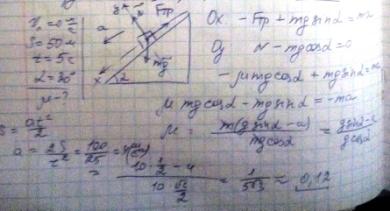 V₀ = 0 м/с
S = 50 м
t = 5 с
α = 30°
μ - ?
a
Fтр
mg
x
α
Ox. -Fтр + mg sinα = ma
Oy N - mg cosα = 0
-μmg cosα + mg sinα = ma
μ mg cosα - mg sinα = -ma
μ = m(g sinα - a) / mg cosα = g sinα - a / g cosα
S = at² / 2
a = 2S / t² = 100 / 25 = 4
= 10 · 1/2 - 4 / 10 · √3/2 = 1 / 5√3 ≈ 0,12